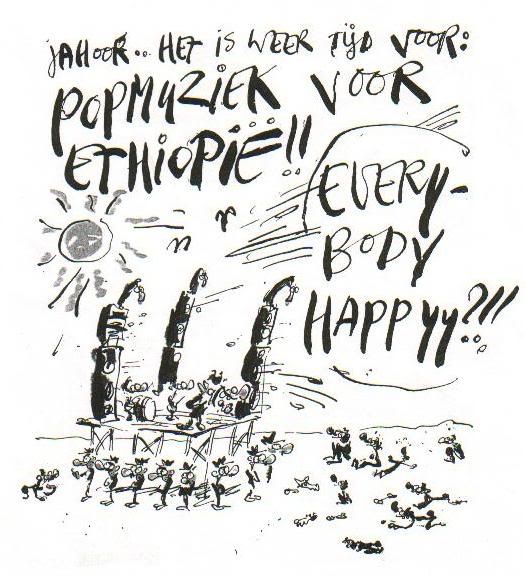 jAHOOR.. HET iS WEER TijD VOOR:
POPMUZiEK VOOR
ETHiOPiË!!
EVERY-
BODY
HAPPYY?!!